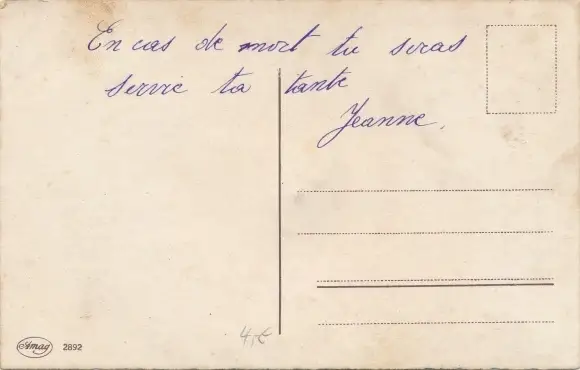 En cas de mort tu seras
servie ta tante
Jeanne.
4,€
Amag 2892